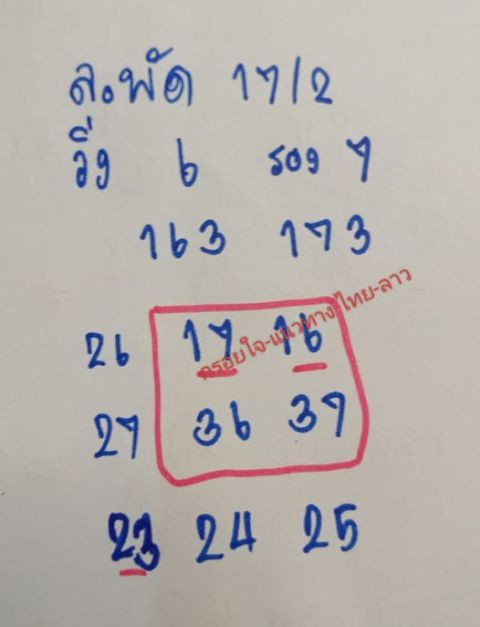 ล.พัด 17/2
วิ่ง 6 รอง 7
163 173
26 17 16
27 36 37
23 24 25
อยใจ-แนวทาง-ไทย-ลาว